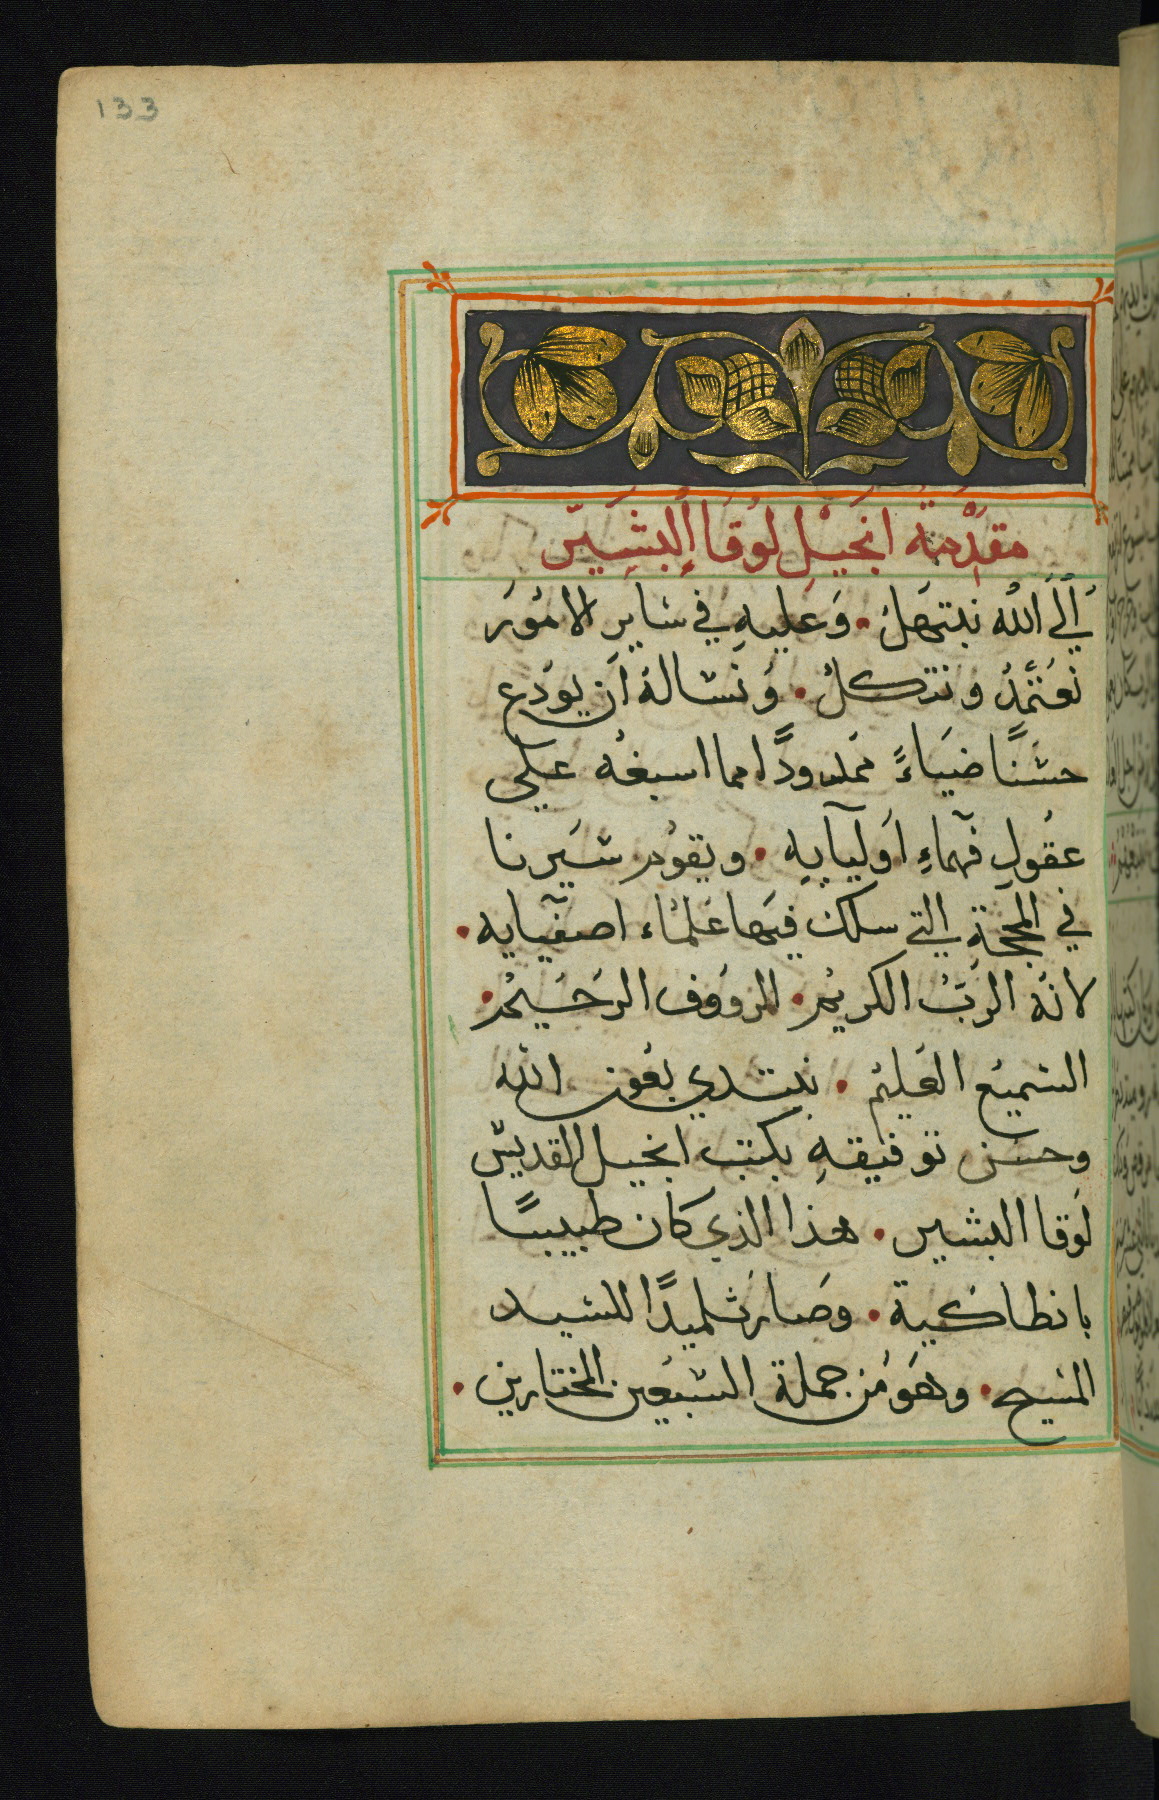 133
مقدمة انجيل لوقا البشير
الى الله نبتهل • وعليه في ساير الامور
نعتمد ونتكل • ونساله ان يودع
حسنا ضياءً ممدودًا مما اسبغه على
عقول فهماء اوليآيه • ويقود سيرنا
في المحجة التي سلك فيها علماء اصفيايه •
لانه الرب الكريم • الرووف الرحيم •
السميع العليم • نبتدي بعون الله
وحسن توفيقه بكتب انجيل القديس
لوقا البشير • هذا الذي كان طبيبًا
بانطاكية • وصار تلميدًا للسيد
المسيح • وهو من جملة السبعين المختارين •